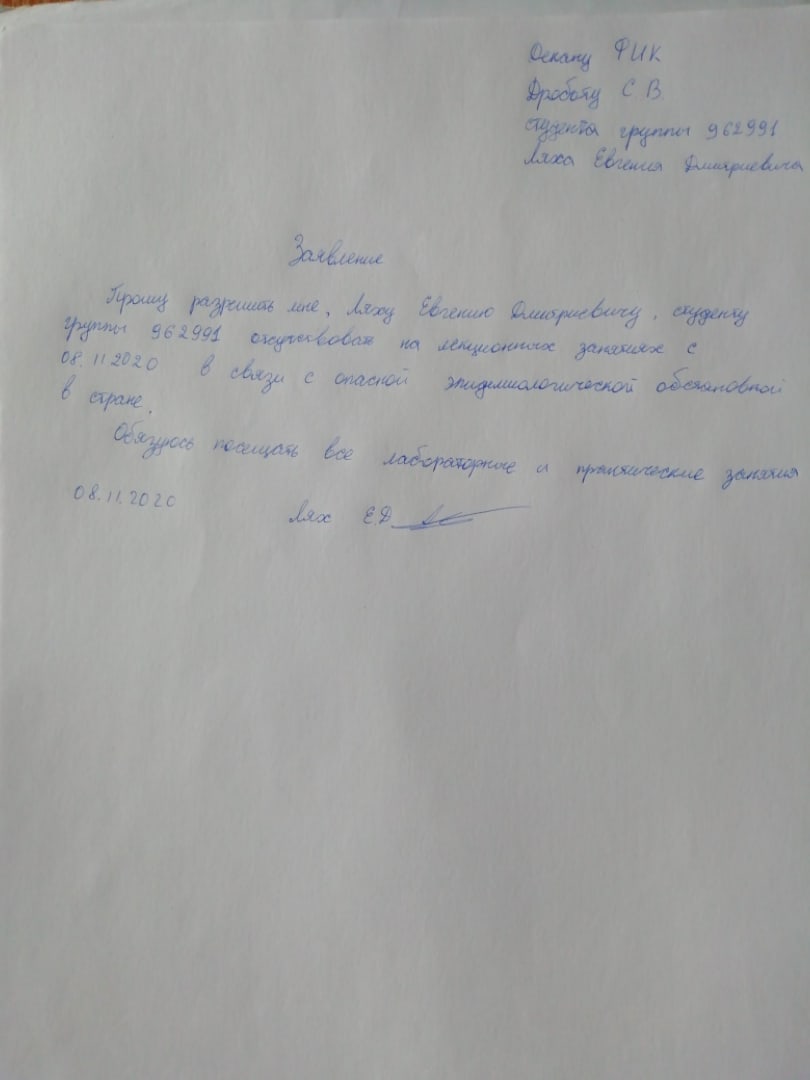 Декану ФИК
Дроботу С.В.
студента группы 962991
Ляха Евгения Дмитриевича
Заявление
Прошу разрешить мне, Ляху Евгению Дмитриевичу, студенту
группы 962991 отсутствовать на лекционных занятиях с
08.11 2020 в связи с опасной эпидемиологической обстановкой
в стране.
Обязуюсь посещать все лабораторные и практические занятия
08.11.2020
Лях Е.Д